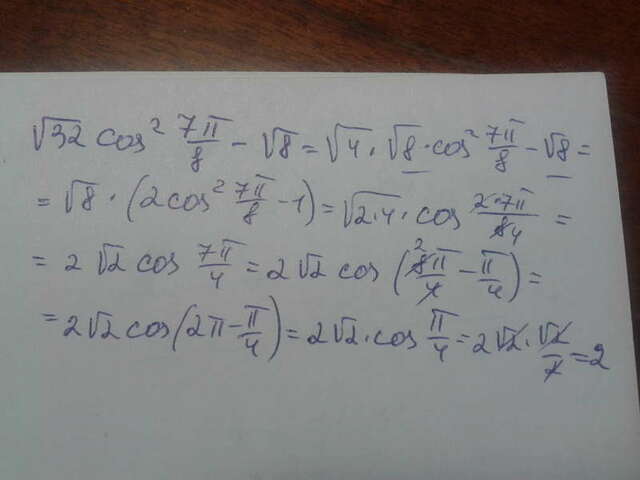 √32 cos² 7π/8 − √8 = √4 · √8 · cos² 7π/8 − √8 =
= √8 · (2cos² 7π/8 − 1) = √2·4 · cos 2·7π/84 =
= 2√2 cos 7π/4 = 2√2 cos (²8π/4 − π/4) =
= 2√2 cos(2π − π/4) = 2√2 · cos π/4 = 2√2 · √2/2 = 2